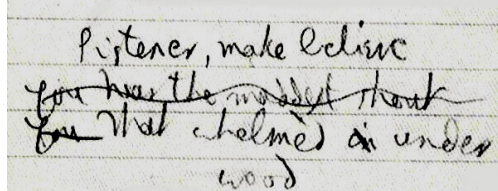 Listener, make believe
you hear the maddest shout
you That whelmed in under
wood